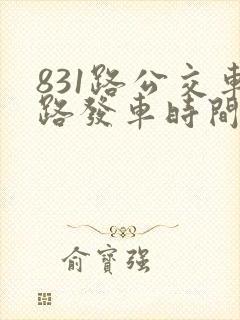 831路公交車
路發車時間
俞寶强